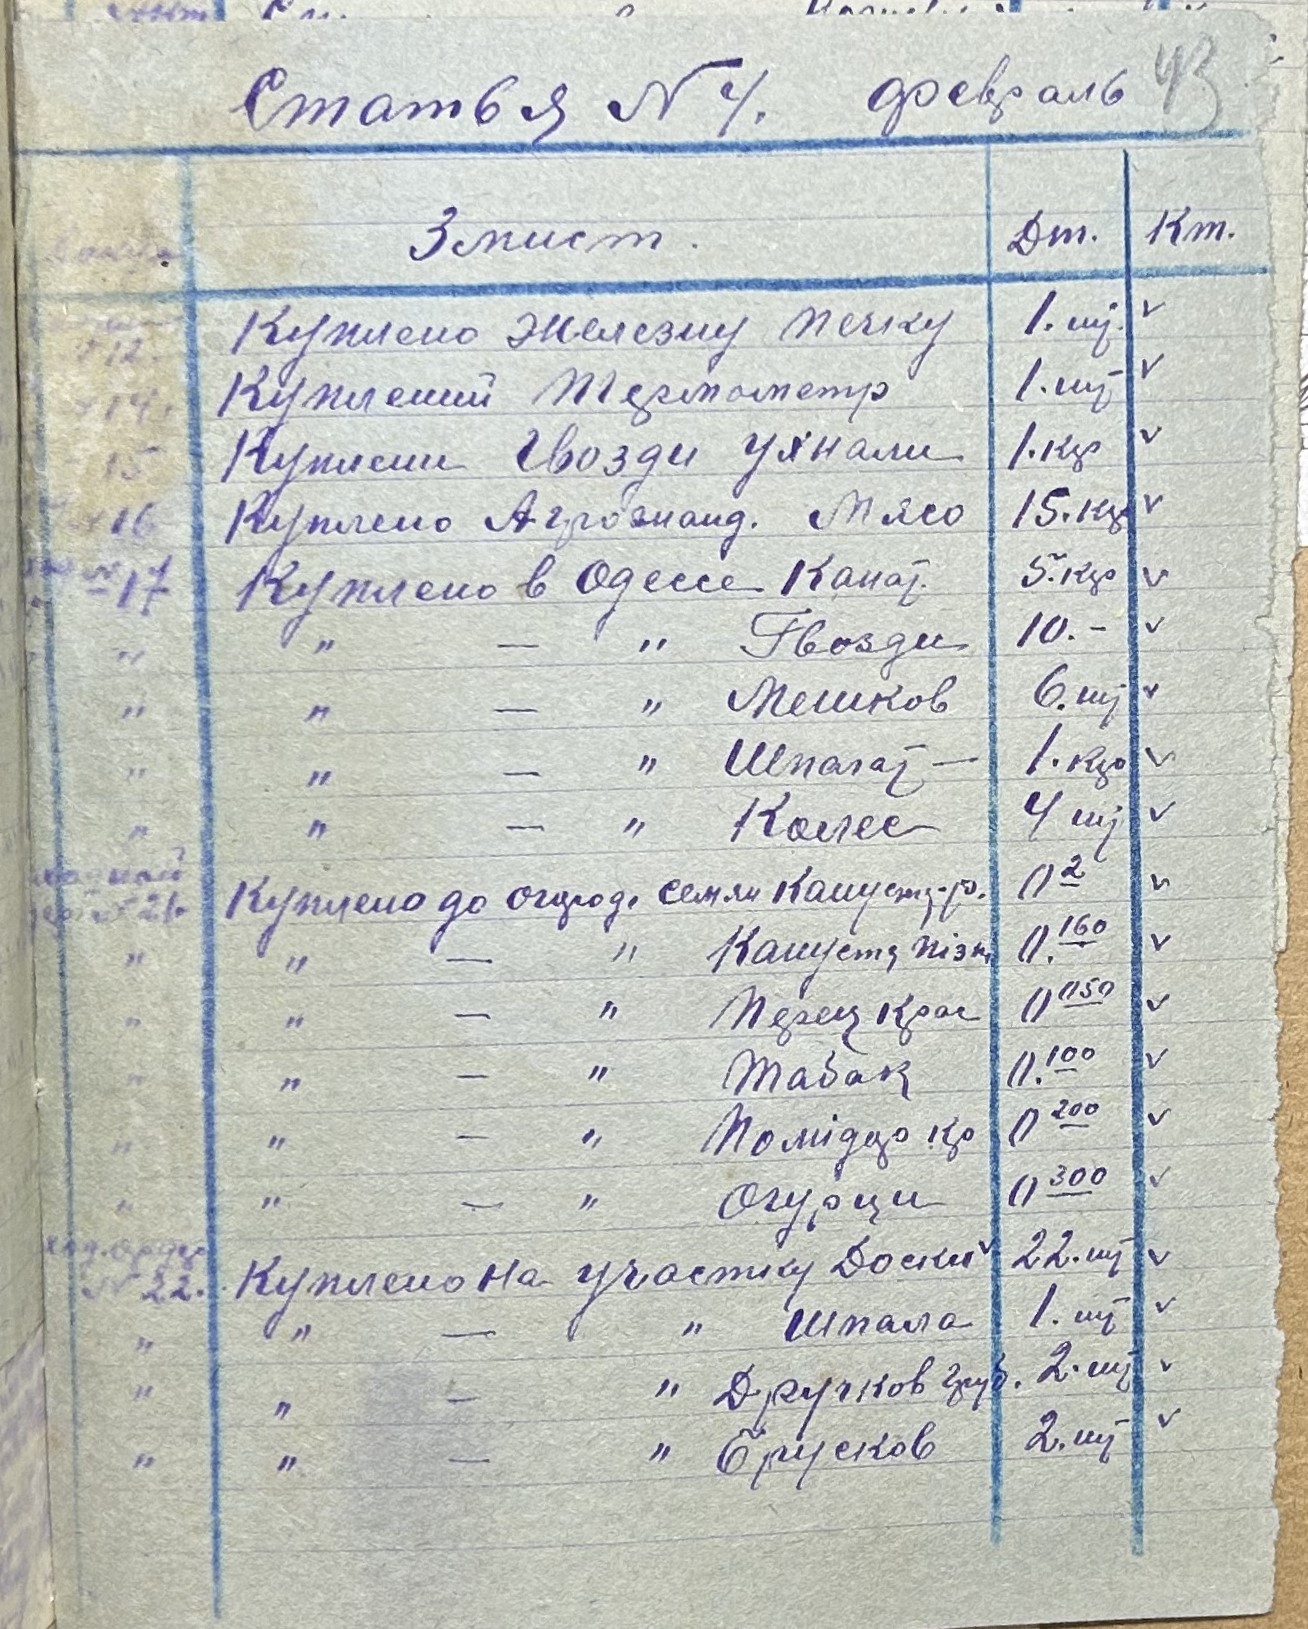 43
Статья N 4. февраль
Змист. Дт. Кт.
12. Куплено Железну печку 1. шт. v
14. Куплений Термометр 1. шт v
15 Куплени Гвозди Ухнали 1. кгр v
16 Куплено Мясо 15. кгр v
N 17 Куплено в Одессе Канат. 5. кгр v
" " — " Гвозди 10. - v
" " — " Мешков 6. шт v
" " — " Шпагат — 1. кгр v
" " — " Колес 4 шт v
N 21. Куплено до огород. семян Капусты р. 0 2 v
" " — " Капусты пізн 0. 160 v
" " — " Перец крас 0 050 v
" " — " Табак 0. 100 v
" " — " Помідор кр 0 200 v
" " — " Огурци 0 300 v
ордер
N 22. Куплено на участку Доски v 22. шт v
" " — " Шпала 1. шт v
" " — " Дручков груб. 2. шт v
" " — " Брусков 2. шт v